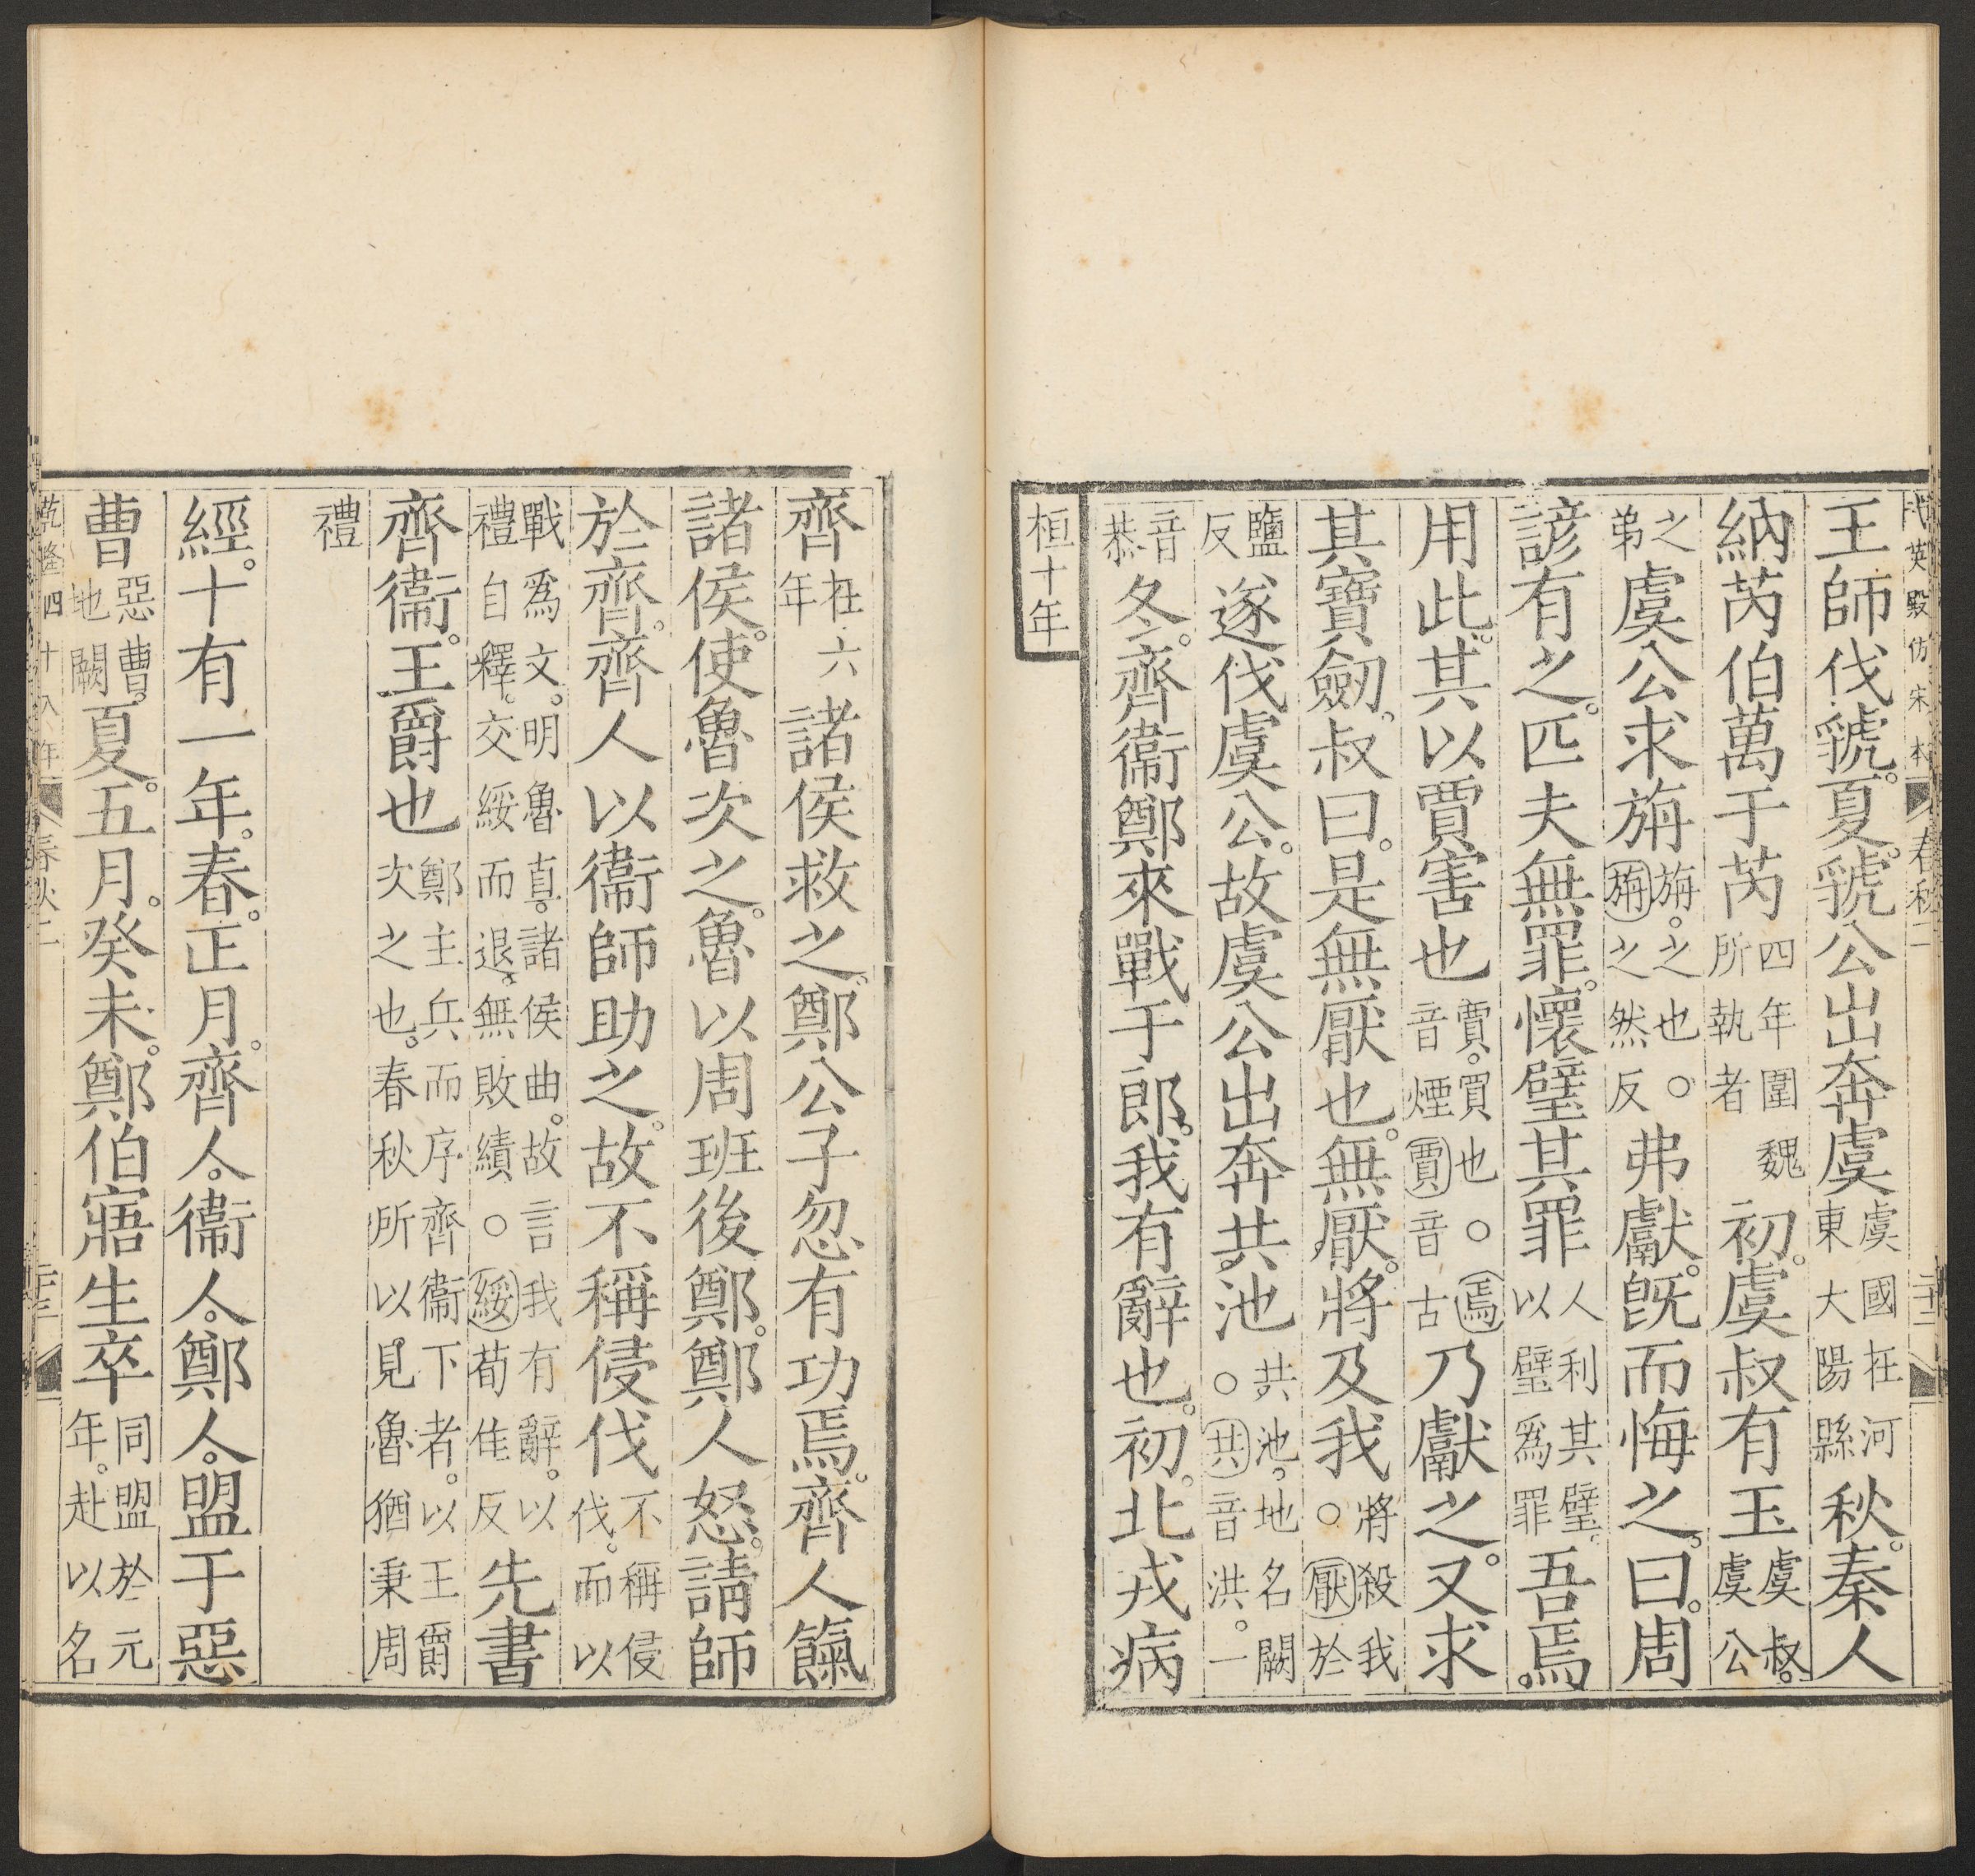 武英殿仿宋本 春秋二 二十二
王師伐虢。夏。虢公出奔虞虞國在河東大陽縣秋。秦人
納芮伯萬于芮四年圍魏所執者初。虞叔有玉虞叔。虞公
之弟虞公求旃旃。之也○旃之然反弗獻。旣而悔之。曰。周
諺有之。匹夫無罪。懷璧其罪人利其璧。以璧爲罪吾焉。
用此。其以賈害也賈。買也○焉音煙賈音古乃獻之。又求
其寶劒。叔曰。是無厭也。無厭。將及我將殺我○厭於
鹽反遂伐虞公。故虞公出奔共池共池。地名闕○共音洪。一
音恭冬。齊衞鄭來戰于郎。我有辭也。初。北戎病
桓十年
齊在六年諸侯救之。鄭公子忽有功焉。齊人餼
諸侯。使魯次之。魯以周班後鄭。鄭人怒。請師
於齊。齊人以衞師助之。故不稱侵伐不稱侵伐。而以
戰爲文。明魯直。諸侯曲。故言我有辭。以禮自釋。交綏而退。無敗績○綏荀隹反先書
齊衞。王爵也鄭主兵而序齊衞下者。以王爵次之也。春秋所以見魯猶秉周
禮
經。十有一年。春。正月。齊人。衞人。鄭人。盟于惡
曹惡曹。地闕夏。五月。癸未。鄭伯寤生卒同盟於元年。赴以名
乾隆四十八年 春秋二 二十三